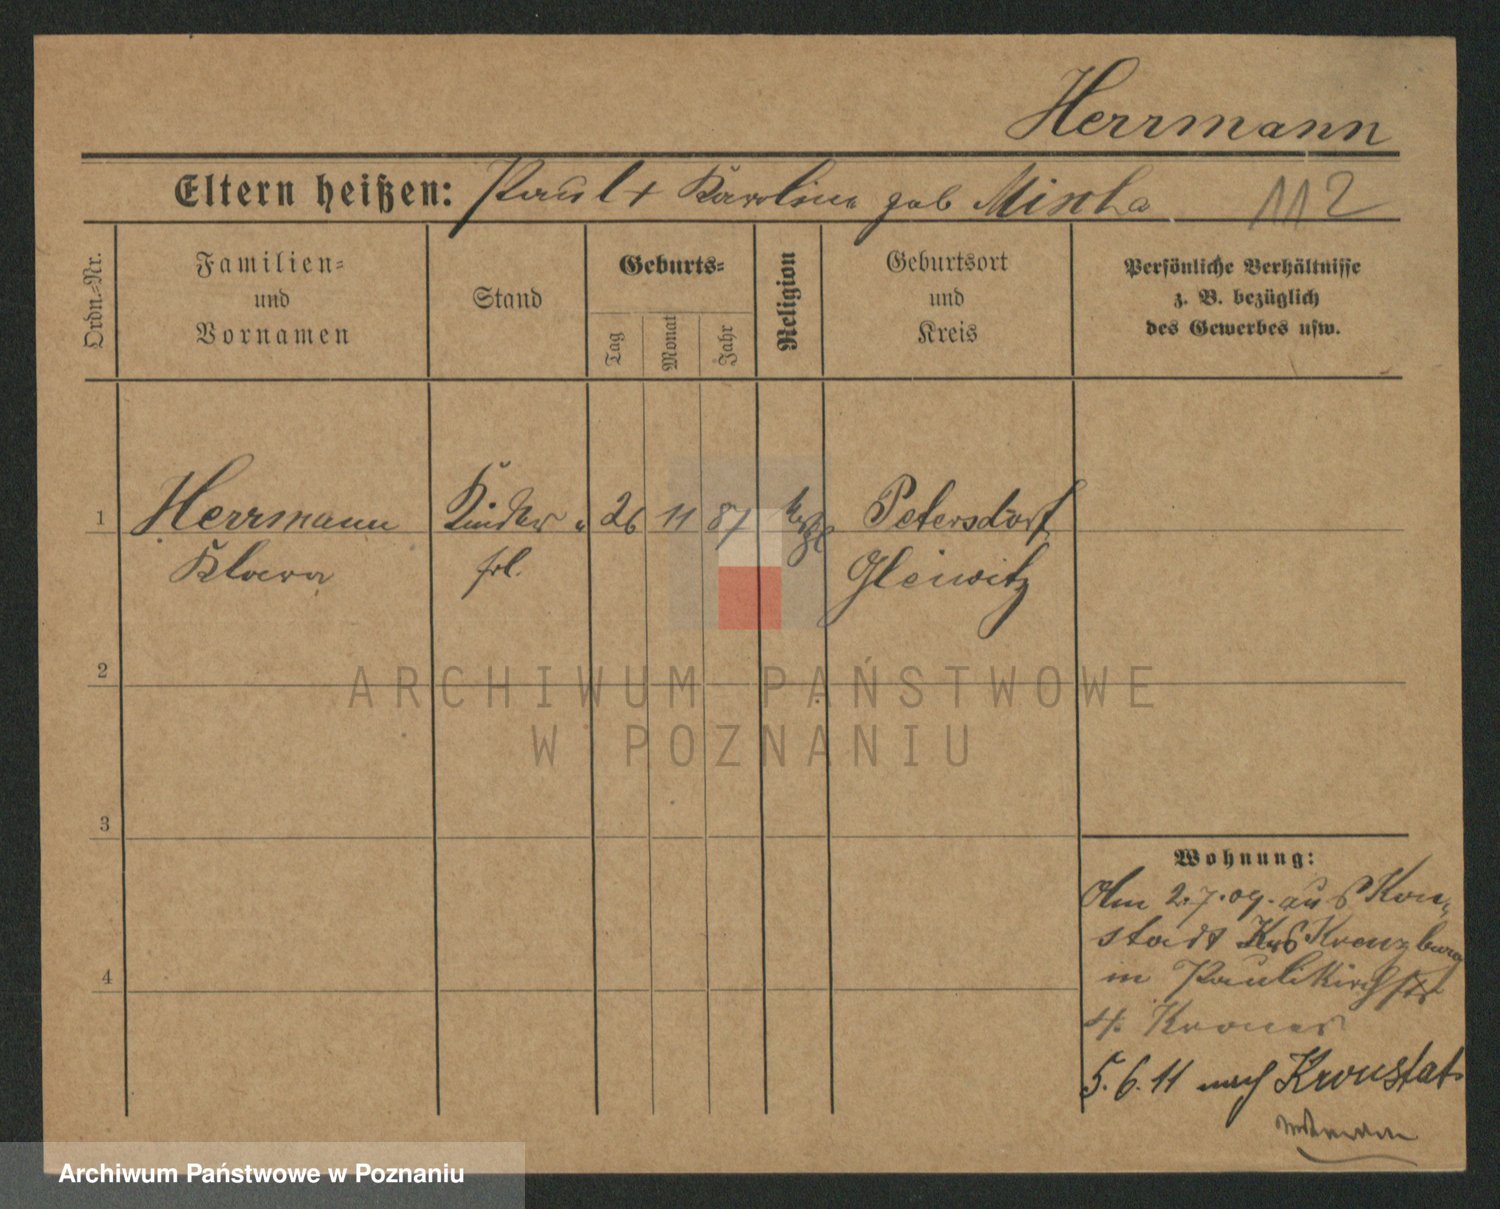 Herrmann
Eltern heißen: Paul + Karoline geb Mischa
112
Ordn.-Nr.
Familien-
und
Vornamen
Stand
Geburts-
Tag
Monat
Jahr
Religion
Geburtsort
und
Kreis
Persönliche Verhältnisse
z. B. bezüglich
des Gewerbes usw.
1 Herrmann Kinder- 26 11 87 Petersdorf
Klara frl. Gleiwitz
2
ARCHIWUM PAŃSTWOWE
W POZNANIU
3
4
Wohnung:
Am 2.7.09. aus Kon-
stadt Krs Kreuzburg
in Paulikirchstr
4.
5.6.11 nach Kronstat
Archiwum Państwowe w Poznaniu